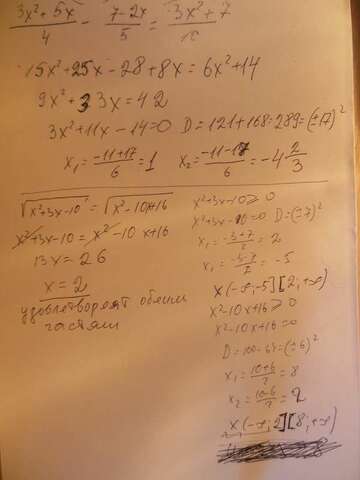 3x²+5x/4 - 7-2x/5 = 3x²+7/10
15x²+25x-28+8x=6x²+14
9x²+33x=42
3x²+11x-14=0 D=121+168=289=(±17)²
x₁=-11+17/6=1 x₂=-11-17/6=-4 2/3
√x²+3x-10=√x²-10x+16
x²+3x-10=x²-10x+16
13x=26
x=2
удовлетворяет обеим
частям
x²+3x-10≥0
x²+3x-10=0 D=(±7)²
x₁=-3+7/2=2
x₁=-3-7/2=-5
x(-∞;-5][2;+∞)
x²-10x+16≥0
x²-10x+16=0
D=100-64=(±6)²
x₁=10+6/2=8
x₂=10-6/2=2
x(-∞;2][8;+∞)